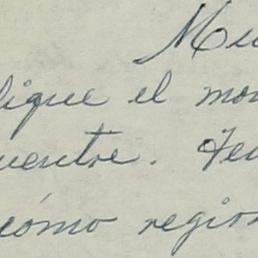 Mu
lique el mo
uentre. Ten
cómo region